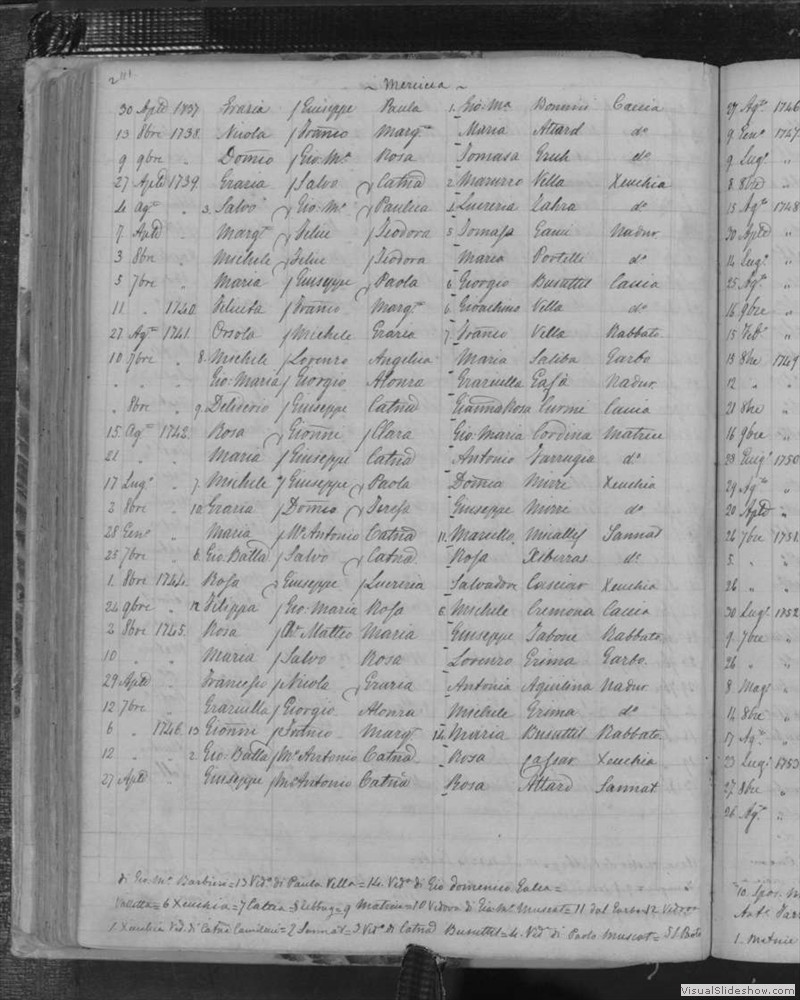 30 Aple 1737 Grazia / Giuseppe Paula 1. Gio: Ma Bonnici Caccia
13 8bre 1738. Nicola / Franco Margta Maria Attard do
9 9bre " Domco / Gio: Ma Rosa Tomasa Grech do
27 Aple 1739. Grazia / Salvo Catna 2 Marurzo Vella Xeuchia
4 Ago " 3. Salvo Gio: Ma Paulica Lucrezia do
7 Aple Margta Felice Teodora 5 Tomasa Gauci Nadur
3 8bre " Michele Felice Teodora Maria Portelli do
5 7bre " Maria Giuseppe Paola 6 Giorgio Busuttil Caccia
11 " 1740. / Franco Margta 6. Gioachino Vella do
27 Ago 1741. Orsola / Michele Grazia 7. Franco Vella Rabbato
10 7bre 8. Michele / Lorenzo Angelica Maria Saliba Garbo
" " Gio: Maria / Giorgio Alonza Graziulla Nadur
" 8bre " 9. Desiderio / Giuseppe Catna Giannarosa Curmi Caccia
15. Ago 1742. Rosa Gionni / Clara Gio: Maria Cordina Matrice
21 " " Maria / Giuseppe Catna Antonio Farrugia do
17 Lugo " 7. Michele Giuseppe Paola Domca Xeuchia
2 8bre " 10. Grazia / Domco Teresa Giuseppe do
28 Geno " Maria / Mc Antonio Catna 11. Marcello Micallef Sannat
25 7bre " 6. Gio: Batta / Salvo Catna Rosa Xiberras do
1. 8bre 1744. Rosa Giuseppe / Lucrezia Salvadora Xeuchia
24 9bre " 12 Filippa Gio: Maria Rosa 6. Michele Cremona Caccia
2 8bre 1745. Rosa / Matteo Maria Giuseppe Tabone Rabbato
10 " " Maria / Salvo Rosa Lorenzo Grima Garbo.
29 Aple " Francesco / Nicola Grazia Antonia Aquilina Nadur
12 7bre " Graziulla / Giorgio Alonza Michele Grima do
6 " 1746. 13 Gionni / Franco Margta 14. Maria Busuttil Rabbato
12 " " 2. Gio: Batta / Mc Antonio Catna Rosa Xeuchia
27 Aple " Giuseppe / Mc Antonio Catna Rosa Attard Sannat
di Gio: Ma Barbieri = 13 Veda di Paula Vella = 14. Veda di Gio Domenico Galea =
Valletta = 6 Xeuchia = 7 = 8 Zebbug = 9 Matrice = 10 Vedova di Gio: Ma Muscat = 11 dal Garbo = 12 Vedovo
1. Xeuchia Ved. di Catna Camilleri = 2 Sannat = 3 Vedo di Catna Busuttil = 4. Veda di Paolo Muscat = 5
27 Ago 1746
9 Geno 1747
9 Lugo "
8. 8bre "
15 Ago 1748
30 Aple "
14 Lugo "
25 Ago "
16 9bre "
15 Febo "
13 8bre 1749
12 " "
21 8bre "
16 9bre "
23 Lugo 1750
29 Ago "
20 Aple "
26 7bre 1751.
5. " "
26 " "
30 Lugo 1752
9 7bre "
26 " "
8 Mago "
14 8bre "
17 Ago "
23 Lugo 1753
27 8bre "
26 Ago "
1. Matrice
VisualSlideshow.com